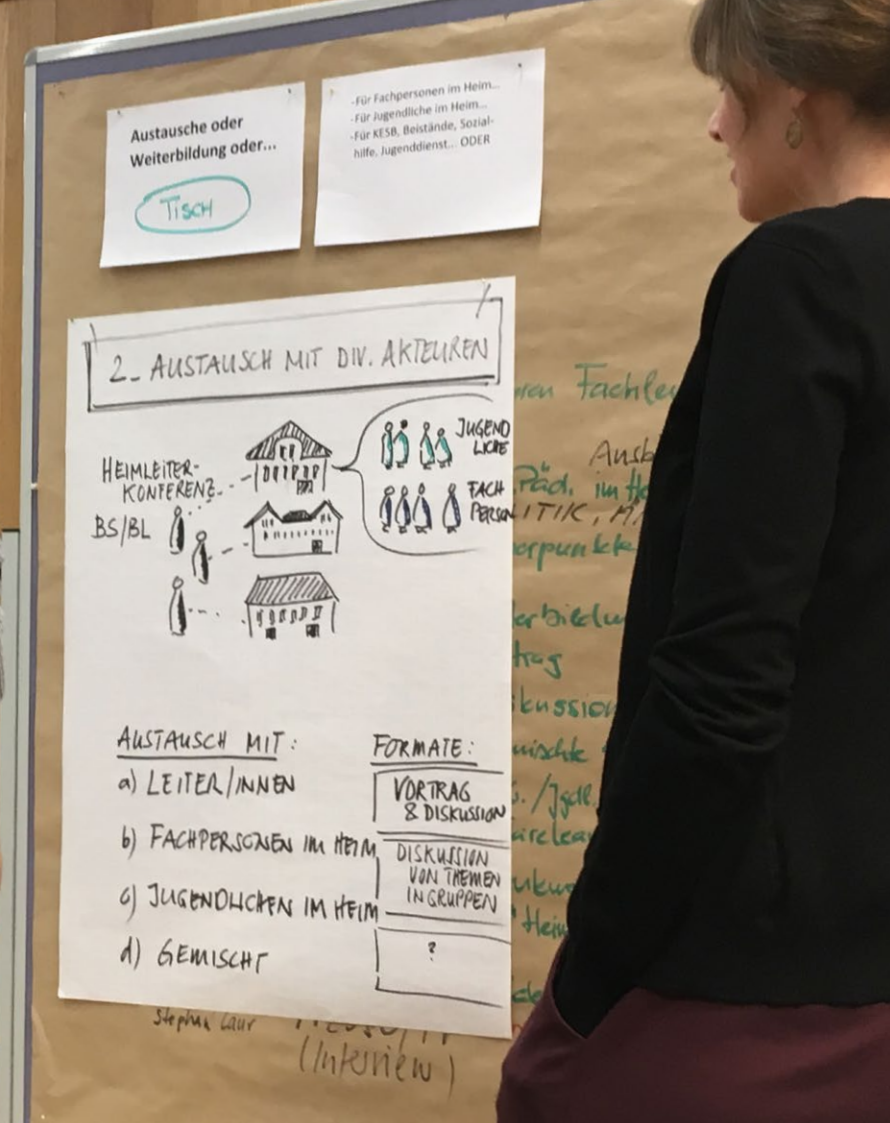 Austausche oder
Weiterbildung oder...
TISCH
-Für Fachpersonen im Heim...
-Für Jugendliche im Heim...
-Für KESB, Beistände, Sozial-
hilfe, Jugenddienst... ODER
2_ AUSTAUSCH MIT DIV. AKTEUREN
HEIMLEITER-
KONFERENZ
BS/BL
JUGEND
LICHE
FACH
PERSON
AUSTAUSCH MIT:
a) LEITER/INNEN
b) FACHPERSONEN IM HEIM
c) JUGENDLICHEN IM HEIM
d) GEMISCHT
FORMATE:
VORTRAG
& DISKUSSION
DISKUSSION
VON THEMEN
IN GRUPPEN
?
Fachle
Ausb
Päd. im
ITIK,
orpunkte
erbildu
trag
kussion
mischte
/Jgdl.
Heim
(Interview)